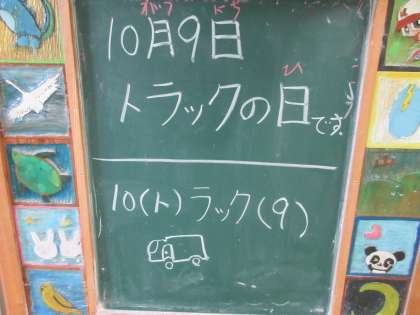 がつ にち
10月9日
ひ
トラックの日です
10(ト)ラック(9)